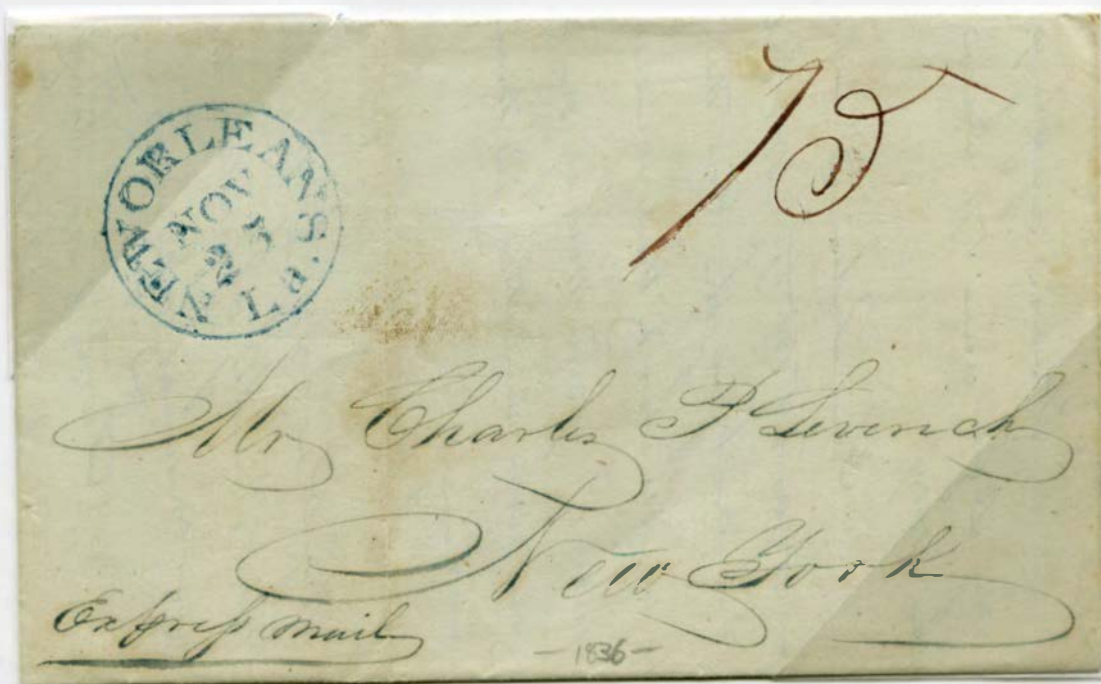 75
NEW ORLEANS. La.
NOV
25
Mr Charles P Leverich
New York
Express mail
- 1836 -